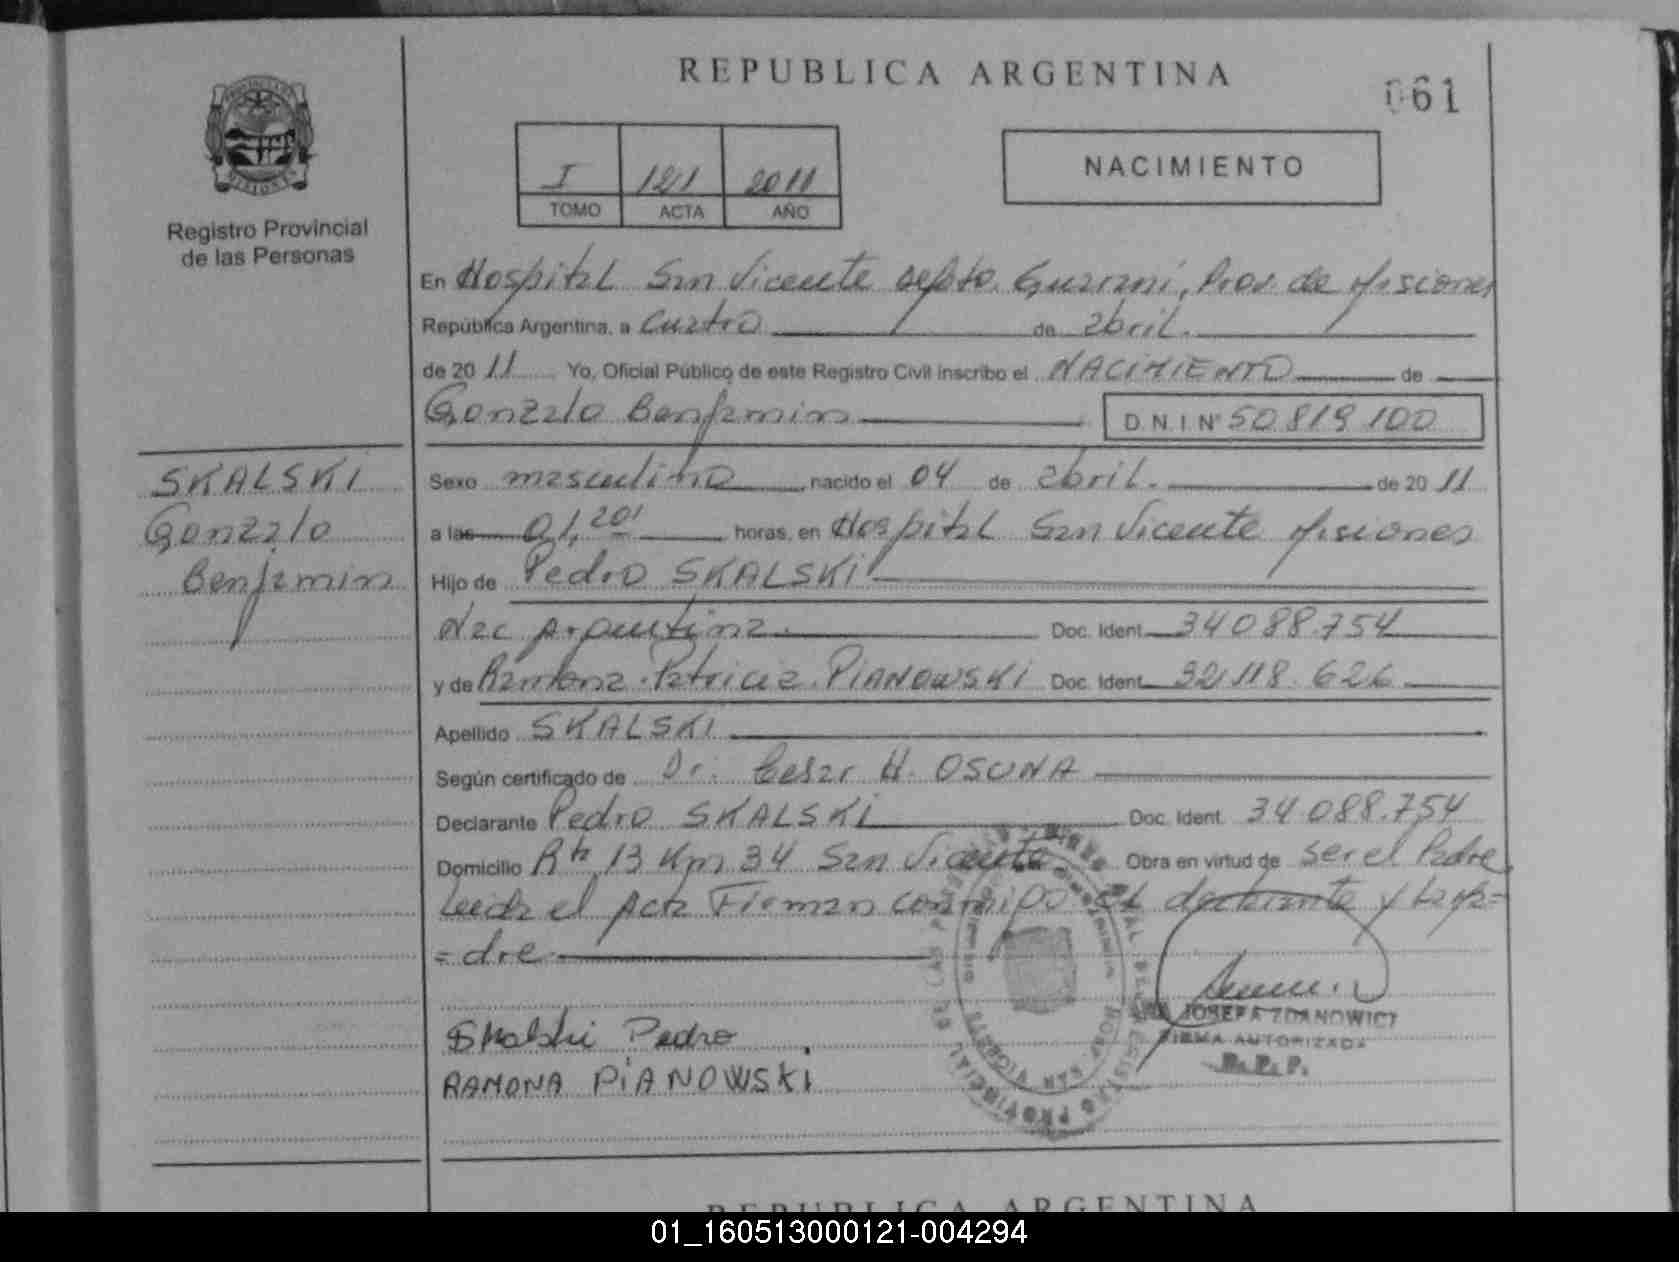 REPUBLICA ARGENTINA
061
PROVINCIA DE
MISIONES
Registro Provincial
de las Personas
I 121 2011
TOMO ACTA AÑO
NACIMIENTO
En Hospital San Vicente depto. Guarani, Prov. de Misiones
República Argentina, a Cuatro de abril.
de 2011 Yo, Oficial Público de este Registro Civil inscribo el NACIMIENTO de
Gonzalo Benjamin D.N.I Nº 50.819.100
SKALSKI
Gonzalo
Benjamin
Sexo masculino nacido el 04 de abril. de 2011
a las 01,20' horas, en Hospital San Vicente Misiones
Hijo de Pedro SKALSKI
Nac Argentina. Doc. Ident. 34.088.754
y de Ramona Patricia PIANOWSKI Doc. Ident. 32.118.626
Apellido SKALSKI
Según certificado de Dr. Cesar H. OSUNA
Declarante Pedro SKALSKI Doc. Ident. 34.088.754
Domicilio Rta 13 Km 34 San Vicente Obra en virtud de ser el Padre
Leida el Acta Firman conmigo el declarante y la Ma=
=dre
Skalski Pedro
RAMONA PIANOWSKI
JOSEFA ZDANOWICZ
FIRMA AUTORIZADA
R.P.P.
REPUBLICA ARGENTINA
01_160513000121-004294